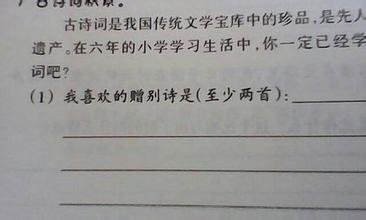 古诗词是我国传统文学宝库中的珍品,是先人
遗产。在六年的小学学习生活中,你一定已经学
词吧?
(1) 我喜欢的赠别诗是(至少两首):